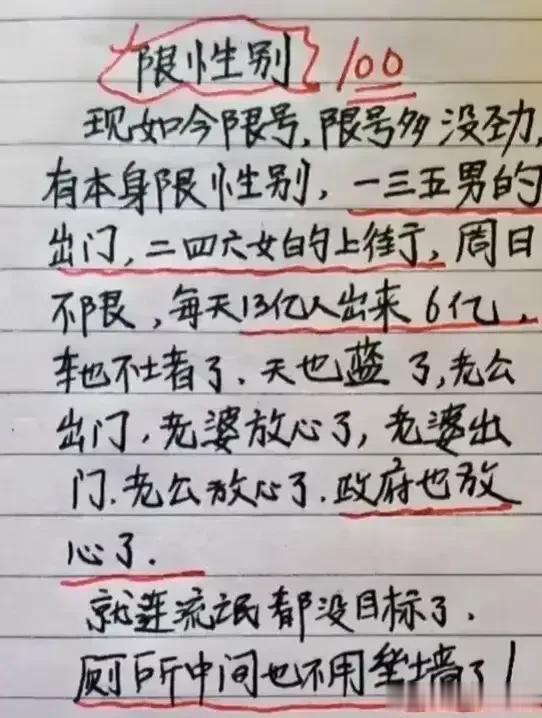 限性别 100
现如今限号,限号多没劲,
有本身限性别,一三五男的
出门,二四六女的上街,周日
不限,每天13亿人出来6亿,
车也不堵了.天也蓝了,老公
出门,老婆放心了,老婆出
门.老公放心了.政府也放
心了.
就连流氓都没目标了.
厕所中间也不用垒墙了!